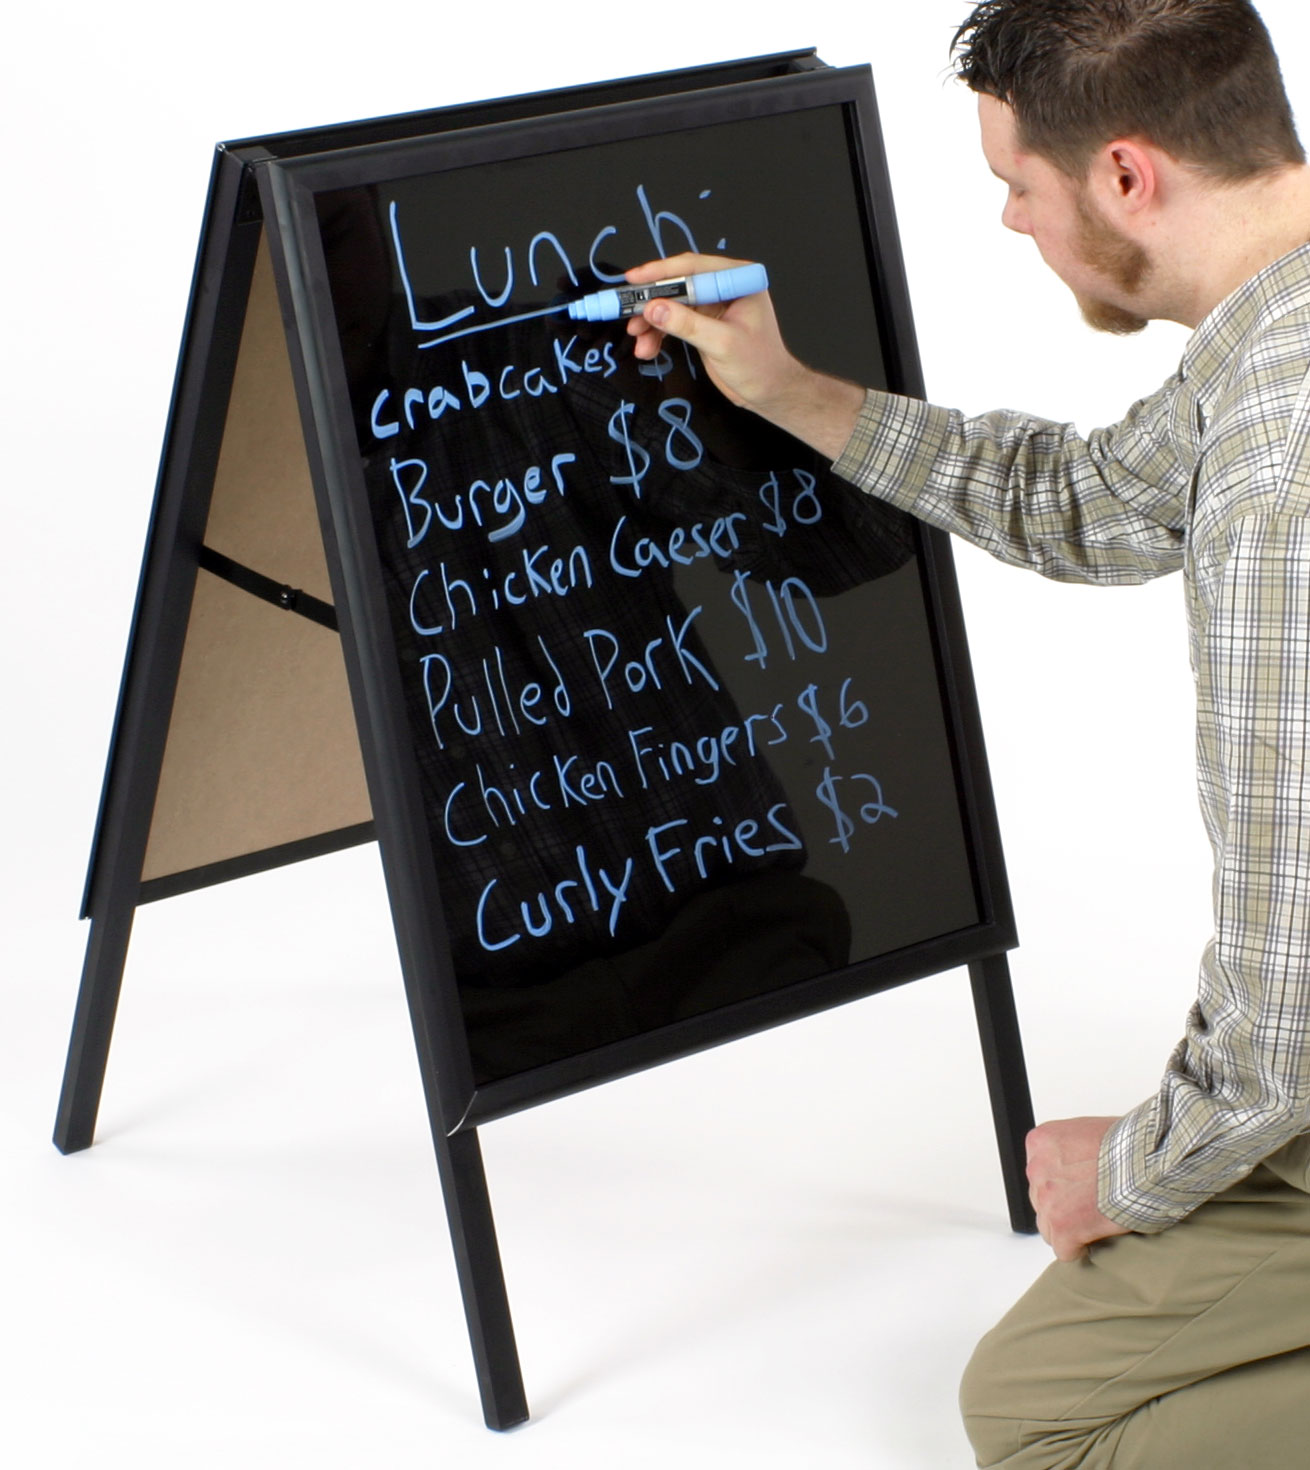 Lunch:
Crabcakes
Burger $8
Chicken Caeser $8
Pulled Pork $10
Chicken Fingers $6
Curly Fries $2